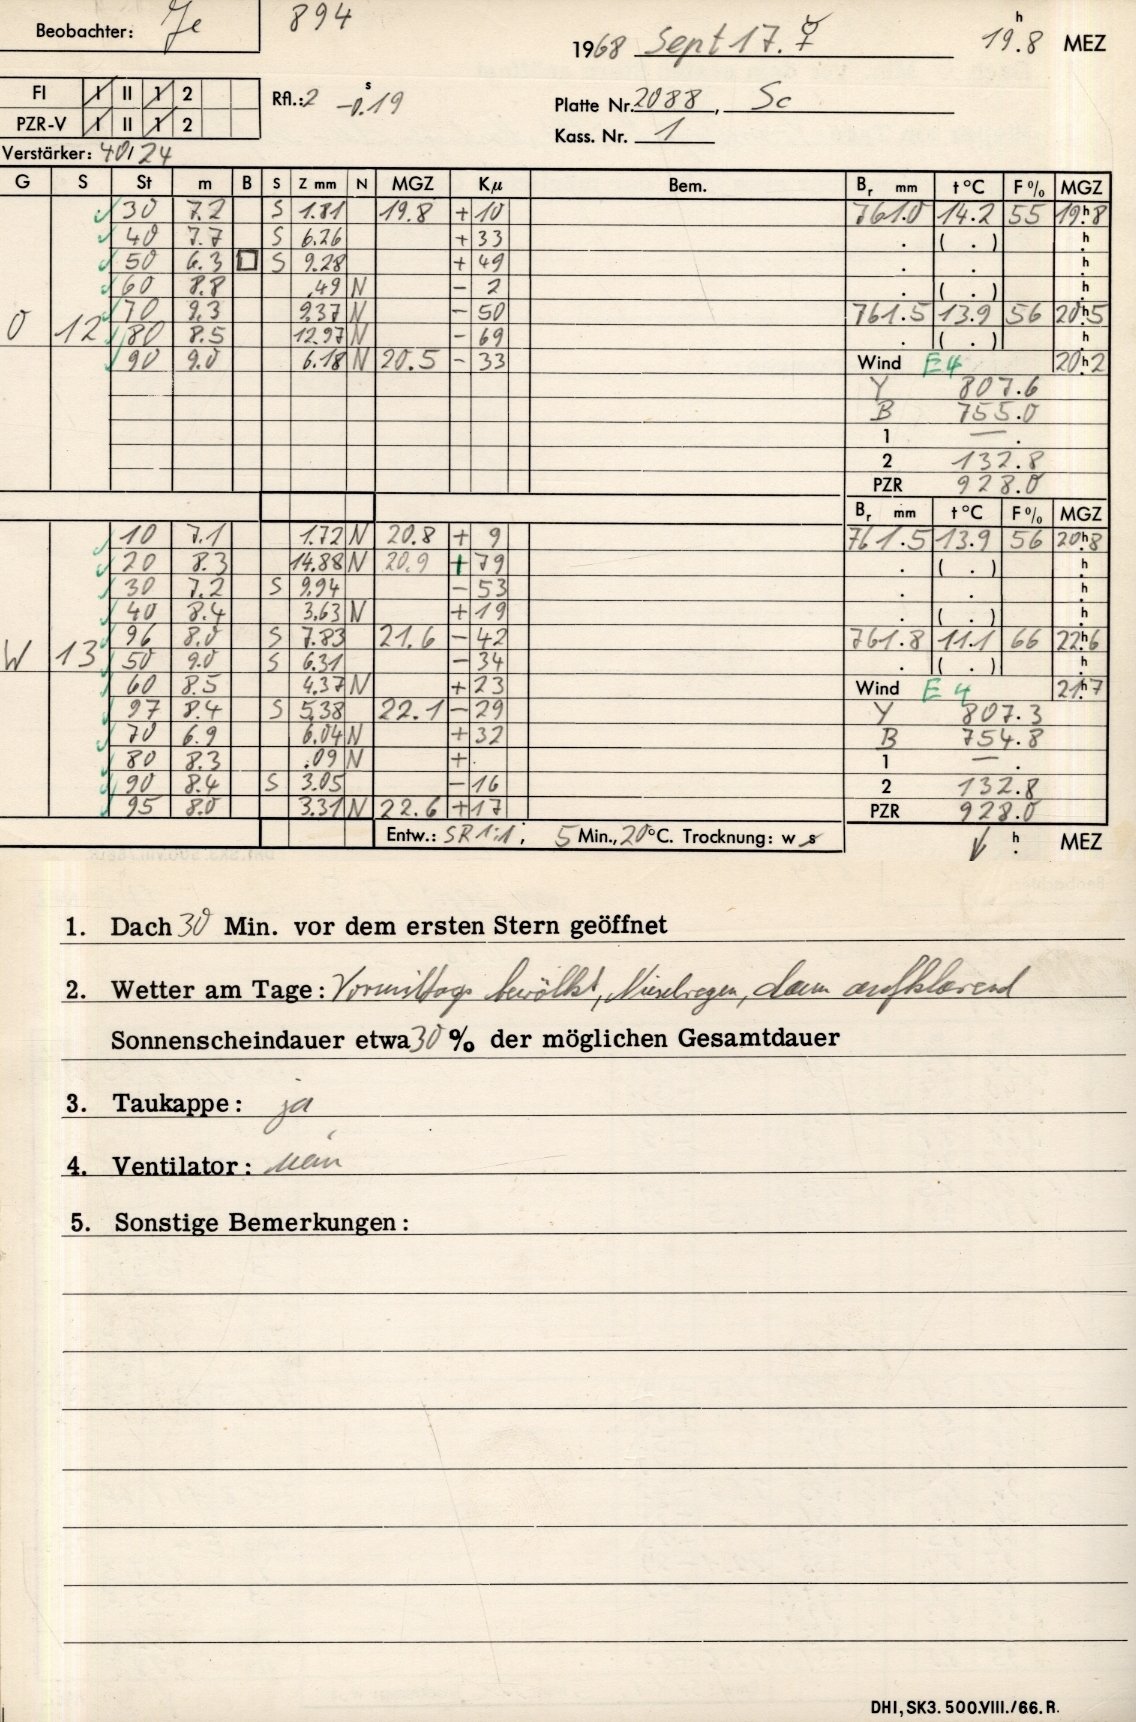 Beobachter: Je 894
1968 Sept 17. ☿ 19.8 h MEZ
FI I II 1 2 Rfl.: 2 -0.19 s
PZR-V I II 1 2
Platte Nr. 2088, Sc
Kass. Nr. 1
Verstärker: 40/24
G S St m B S Z mm N MGZ Kμ Bem. Br mm t °C F % MGZ
30 7.2 S 1.81 19.8 + 10 761.0 14.2 55 19h8
40 7.7 S 6.26 + 33 . ( . ) h
50 6.3 □ S 9.28 + 49 . . h
60 8.8 .49 N - 2 . ( . ) h
70 9.3 9.37 N - 50 761.5 13.9 56 20h5
O 12 80 8.5 12.97 N - 69 . ( . ) h
90 9.0 6.18 N 20.5 - 33 Wind E 4 20h2
Y 807.6
B 755.0
1 — .
2 132.8
PZR 928.0
Br mm t °C F % MGZ
10 7.1 1.72 N 20.8 + 9 761.5 13.9 56 20h8
20 8.3 14.88 N 20.9 + 79 . ( . ) h
30 7.2 S 9.94 - 53 . . h
40 8.4 3.63 N + 19 . ( . ) h
96 8.0 S 7.83 21.6 - 42 761.8 11.1 66 22h6
W 13 50 9.0 S 6.31 - 34 . ( . ) h
60 8.5 4.37 N + 23 Wind E 4 21h7
97 8.4 S 5.38 22.1 - 29 Y 807.3
70 6.9 6.04 N + 32 B 754.8
80 8.3 .09 N + . 1 — .
90 8.4 S 3.05 - 16 2 132.8
95 8.0 3.31 N 22.6 + 17 PZR 928.0
Entw.: SR 1:1; 5 Min., 20°C. Trocknung: w s h MEZ
1. Dach 30 Min. vor dem ersten Stern geöffnet
2. Wetter am Tage: Vormittags bewölkt, Nieselregen, dann aufklarend
Sonnenscheindauer etwa 30 % der möglichen Gesamtdauer
3. Taukappe: ja
4. Ventilator: nein
5. Sonstige Bemerkungen:
DHI, SK3. 500.VIII./66. R.